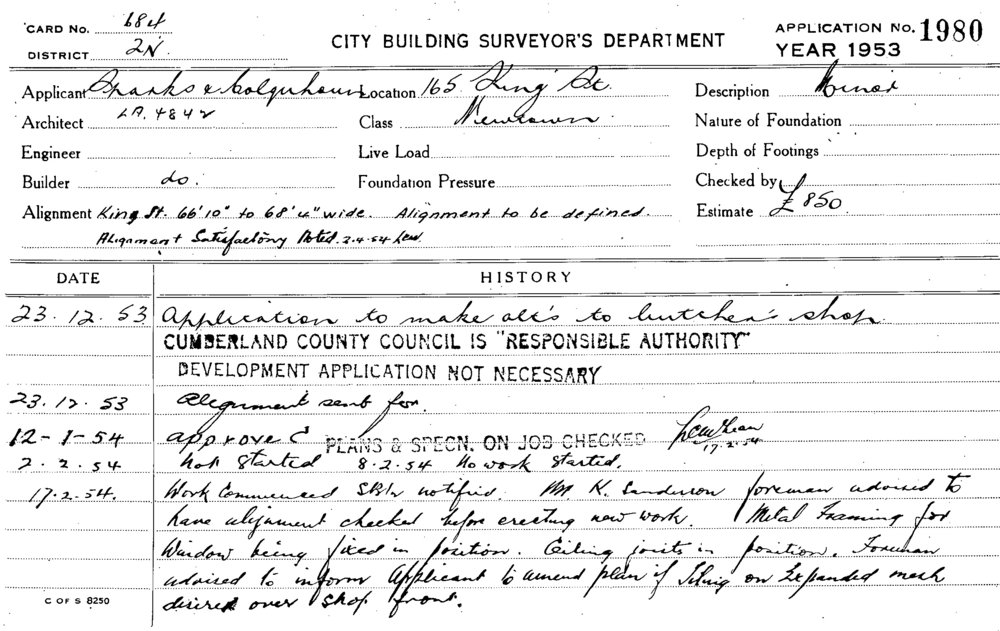 CARD No. 684
DISTRICT 2N
CITY BUILDING SURVEYOR'S DEPARTMENT
APPLICATION No. 1980
YEAR 1953
Applicant Sparks & Colquhoun Location 165 King St. Description Minor
Architect LA. 4842 Class Newtown Nature of Foundation
Engineer Live Load Depth of Footings
Builder do. Foundation Pressure Checked by
Alignment King St. 66'10" to 68'4" wide. Alignment to be defined. Estimate £850
Alignment Satisfactory Noted 2.4.54
DATE HISTORY
23.12.53 Application to make alt's to butcher's shop
CUMBERLAND COUNTY COUNCIL IS "RESPONSIBLE AUTHORITY"
DEVELOPMENT APPLICATION NOT NECESSARY
23.12.53 Alignment sent for.
12-1-54 approved PLANS & SPECN. ON JOB CHECKED 17.2.54
2.2.54 Not Started 8.2.54 No work Started.
17.2.54. Work Commenced notified. Mr K. Sanderson foreman advised to
have alignment checked before erecting new work. Metal Framing for
Window being fixed in position. Ceiling joists in position. Foreman
advised to inform Applicant to amend plan if tiling on Expanded mesh
desired over shop front.
C OF S 8250